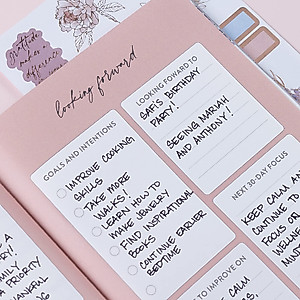 Gratitude
makes a
difference
looking forward
GOALS AND INTENTIONS
IMPROVE COOKING
SKILLS
TAKE MORE
WALKS!
LEARN HOW TO
MAKE JEWELRY
FIND INSPIRATIONAL
BOOKS
CONTINUE EARLIER
BEDTIME
LOOKING FOWARD TO
SAFI'S BIRTHDAY
PARTY!
SEEING MARIAH
AND ANTHONY!
NEXT 30-DAY FOCUS
KEEP CALM AN
CONTINUE TO
FOCUS ON
WELLNE
MIN
TO IMPROVE ON